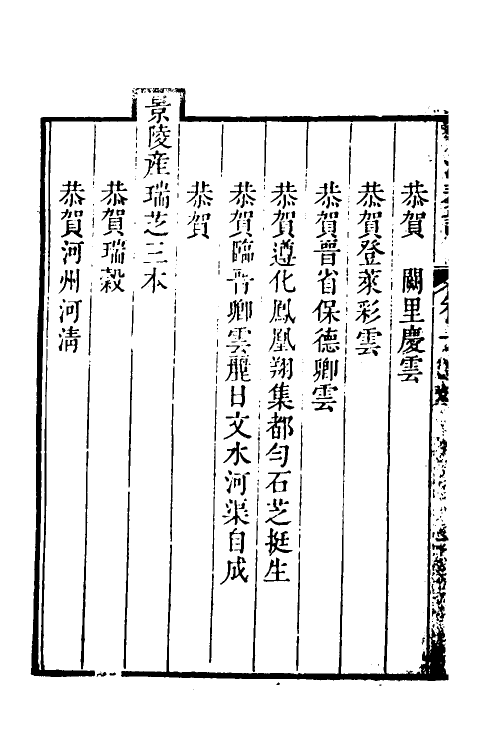 恭賀　闕里慶雲
恭賀登萊彩雲
恭賀晉省保德卿雲
恭賀遵化鳳凰翔集都勻石芝挺生
恭賀臨晉卿雲麗日文水河渠自成
恭賀
景陵產瑞芝三本
恭賀瑞穀
恭賀河州河清